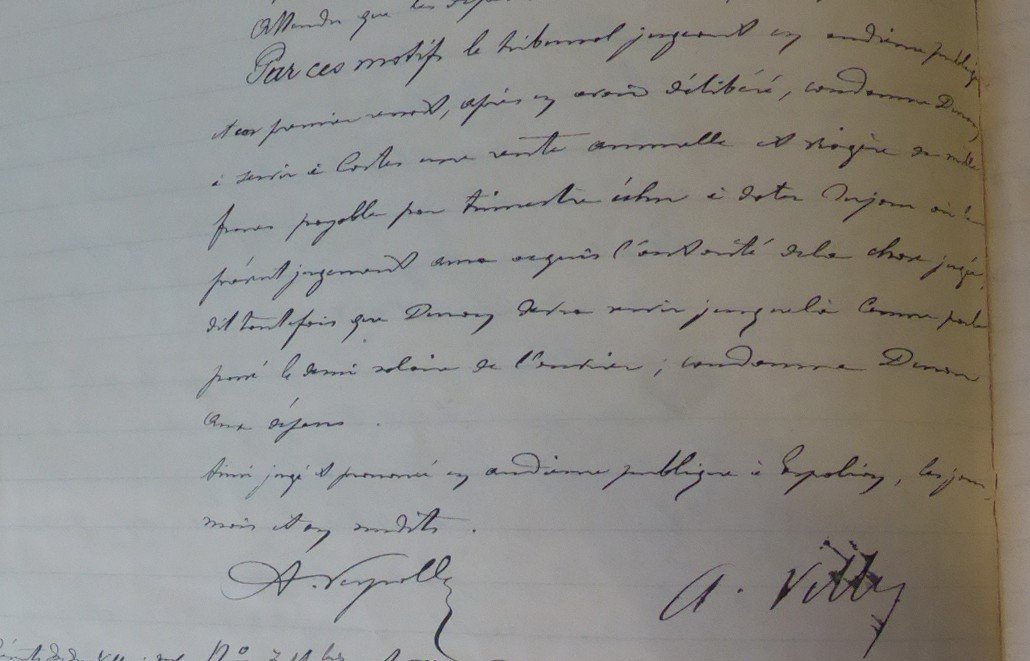 Attendu que les dépens
Par ces motifs le tribunal jugeant en audience publique
et en premier ressort, après en avoir délibéré, condamne Dunoy
à servir à Costes une rente annuelle et viagère de mille
francs payable par trimestre échu à dater du jour où le
présent jugement aura acquis l'autorité de la chose jugée,
dit toutefois que Dunoy devra servir jusque là comme par le
passé le demi salaire de l'ouvrier ; condamne Dunoy
aux dépens .
Ainsi jugé et prononcé en audience publique à Espalion, les jour,
mois et an susdits .
A. Villy